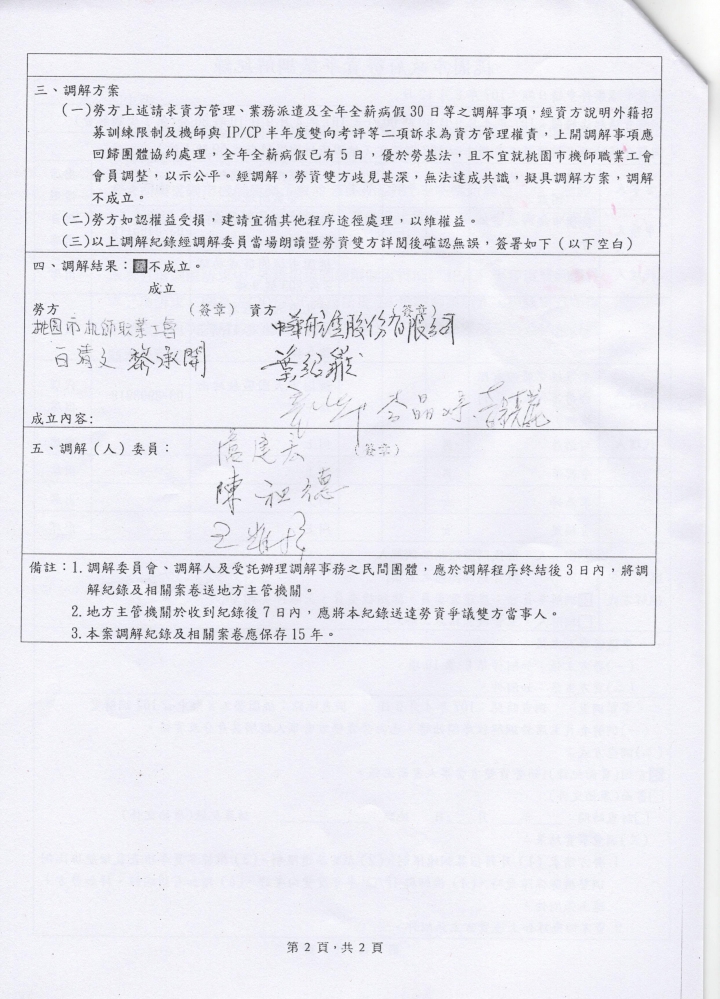 三、調解方案
(一)勞方上述請求資方管理、業務派遣及全年全薪病假30日等之調解事項,經資方說明外籍招
募訓練限制及機師與 IP/CP 半年度雙向考評等二項訴求為資方管理權責,上開調解事項應
回歸團體協約處理,全年全薪病假已有5日,優於勞基法,且不宜就桃園市機師職業工會
會員調整,以示公平。經調解,勞資雙方歧見甚深,無法達成共識,擬具調解方案,調解
不成立。
(二)勞方如認權益受損,建請宜循其他程序途徑處理,以維權益。
(三)以上調解紀錄經調解委員當場朗讀暨勞資雙方詳閱後確認無誤,簽署如下(以下空白)
四、調解結果:不成立。
成立
勞方 (簽章) 資方 (簽章)
桃園市机師职業工會 中華航空股份有限公司
成立內容:
五、調解(人)委員: (簽章)
陳祖德
備註:1.調解委員會、調解人及受託辦理調解事務之民間團體,應於調解程序終結後3日內,將調
解紀錄及相關案卷送地方主管機關。
2.地方主管機關於收到紀錄後7日內,應將本紀錄送達勞資爭議雙方當事人。
3.本案調解紀錄及相關案卷應保存15年。
第2頁,共2頁